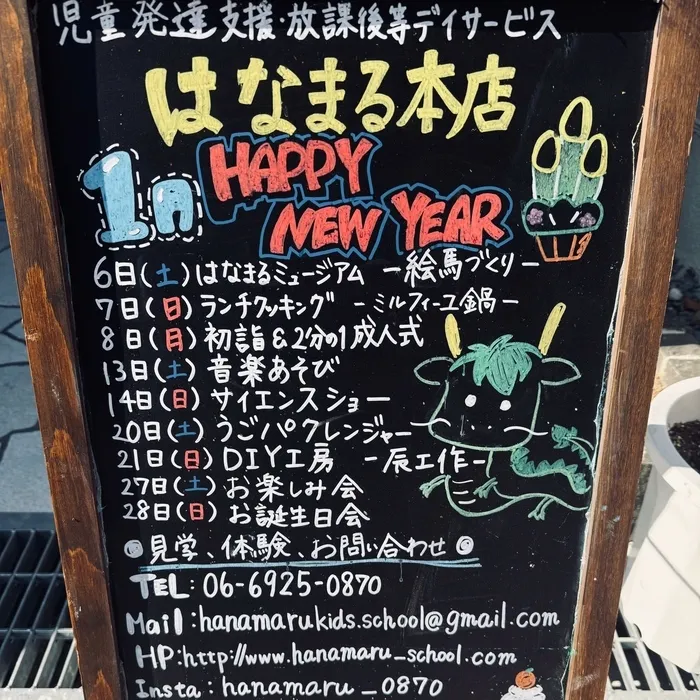 児童発達支援・放課後等デイサービス
はなまる本店
1月
HAPPY
NEW YEAR
6日(土)はなまるミュージアム ー絵馬づくりー
7日(日)ランチクッキング ーミルフィーユ鍋ー
8日(月)初詣&2分の1成人式
13日(土)音楽あそび
14日(日)サイエンスショー
20日(土)うごパククレンジャー
21日(日)DIY工房 ー辰工作ー
27日(土)お楽しみ会
28日(日)お誕生日会
見学、体験、お問い合わせ
TEL:06-6925-0870
Mail:hanamarukids.school@gmail.com
HP:http://www.hanamaru_school.com
Insta:hanamaru_0870